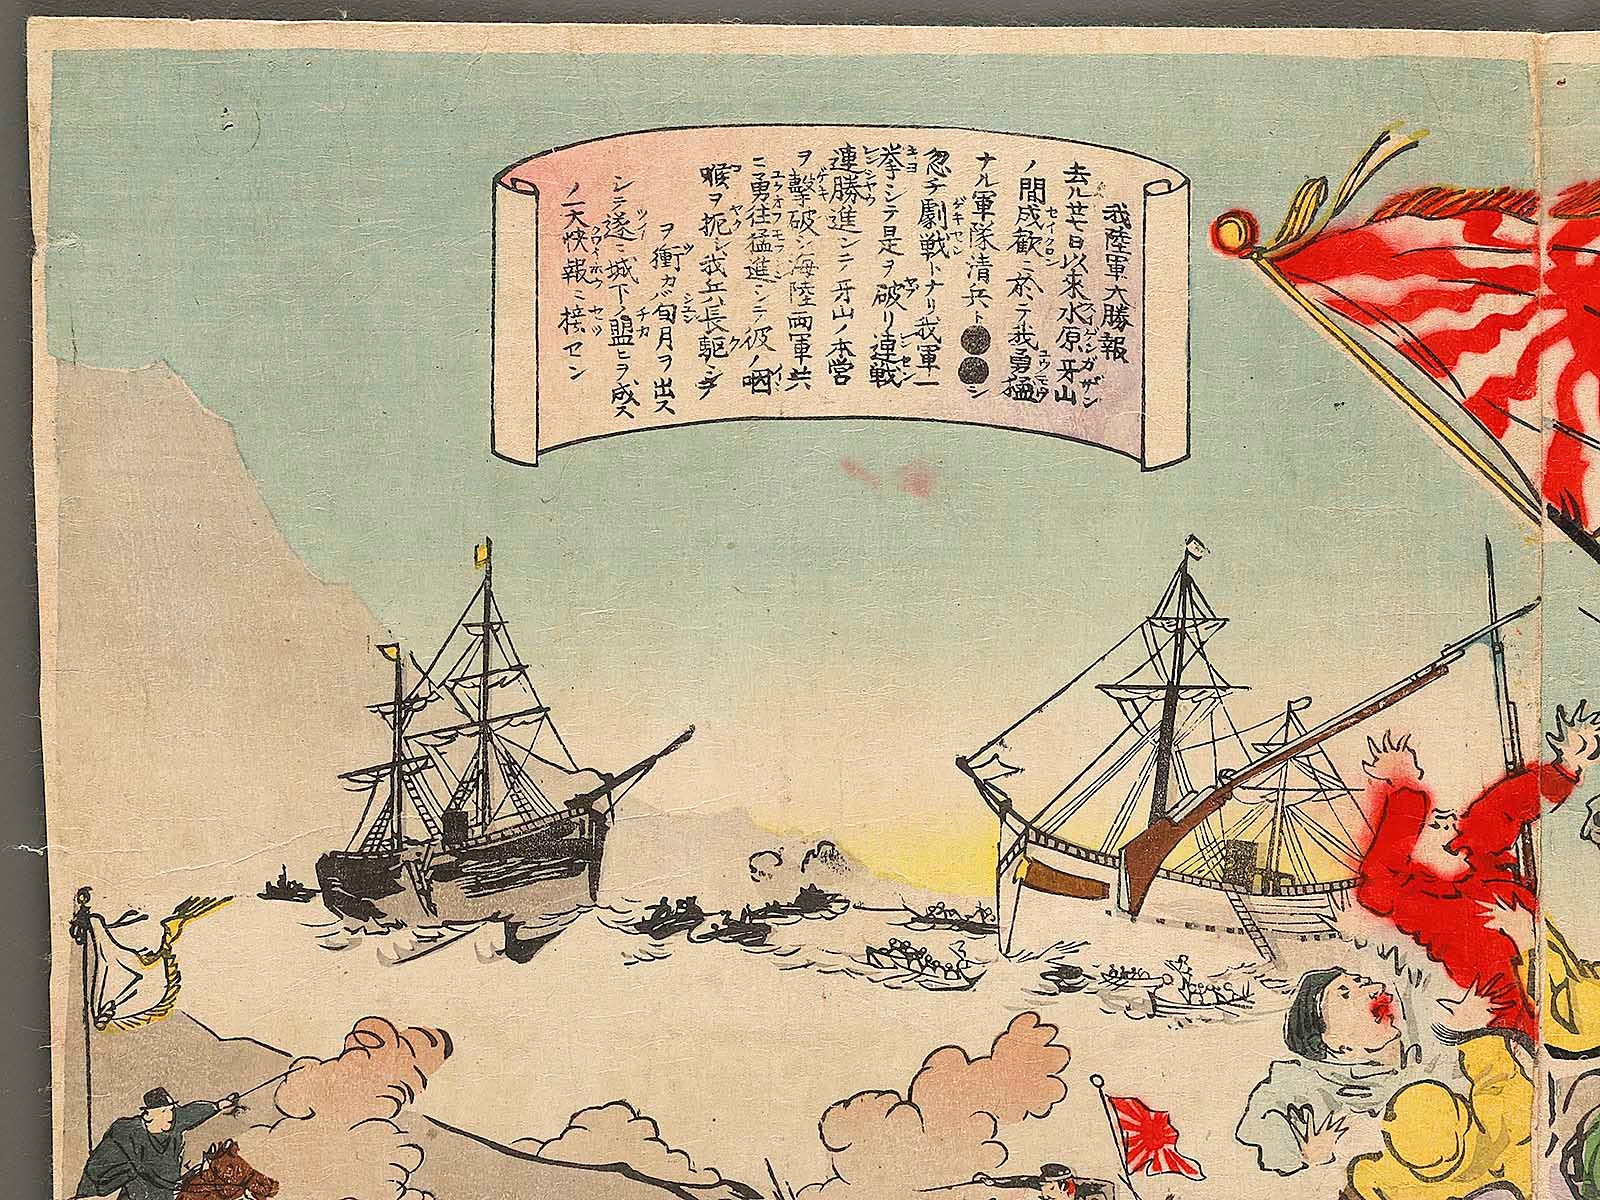 我陸軍大勝報
去ル廿七日以来水原牙山
ノ間成歓ニ於テ我勇猛
ナル軍隊清兵ト●●シ
忽チ劇戦トナリ我軍一
挙シテ是ヲ破リ連戦
連勝進ンテ牙山ノ本営
ヲ撃破シ海陸両軍共
ニ勇往猛進シテ彼ノ咽
喉ヲ扼シ我兵長駆シテ
ヲ衝カバ旬月ヲ出ス
シテ遂ニ城下ノ盟ヒヲ成ス
ノ一大快報ニ接セン